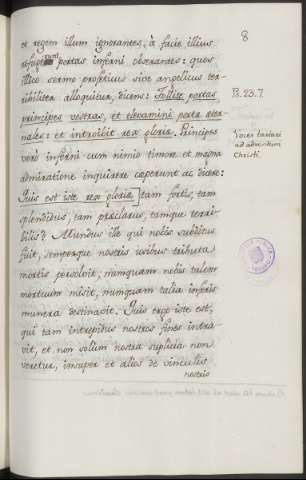 8
et regem illum ignorantes, à facie illius
portas inferni obserantes: quos
illico sermo profetius sive angelicus ter-
ribiliter alloquitur, dicens: Tollite portas
principes vestras, et elevamini porta æter-
nales: et introibit rex gloriæ. Principes
verò inferni cum nimio timore et magna
admiratione inquirere cœperunt ac dicere:
Quis est iste rex gloriæ, tam fortis, tam
splendidus, tam præclarus, tamque terri-
bilis? Mundus ille qui nobis subditus
fuit, semperque nostris usibus tributa
mortis persolvit, numquam nobis talem
mortuum misit, numquam talia inferis
munera destinavit. Quis ergo iste est,
qui tam intrepidus nostros fines intra-
vit, et non solum nostra suplicia non
veretur, insuper et alios de vinculis
nostris
Ps. 23. 7
Voces tartari
ad adventum
Christi.